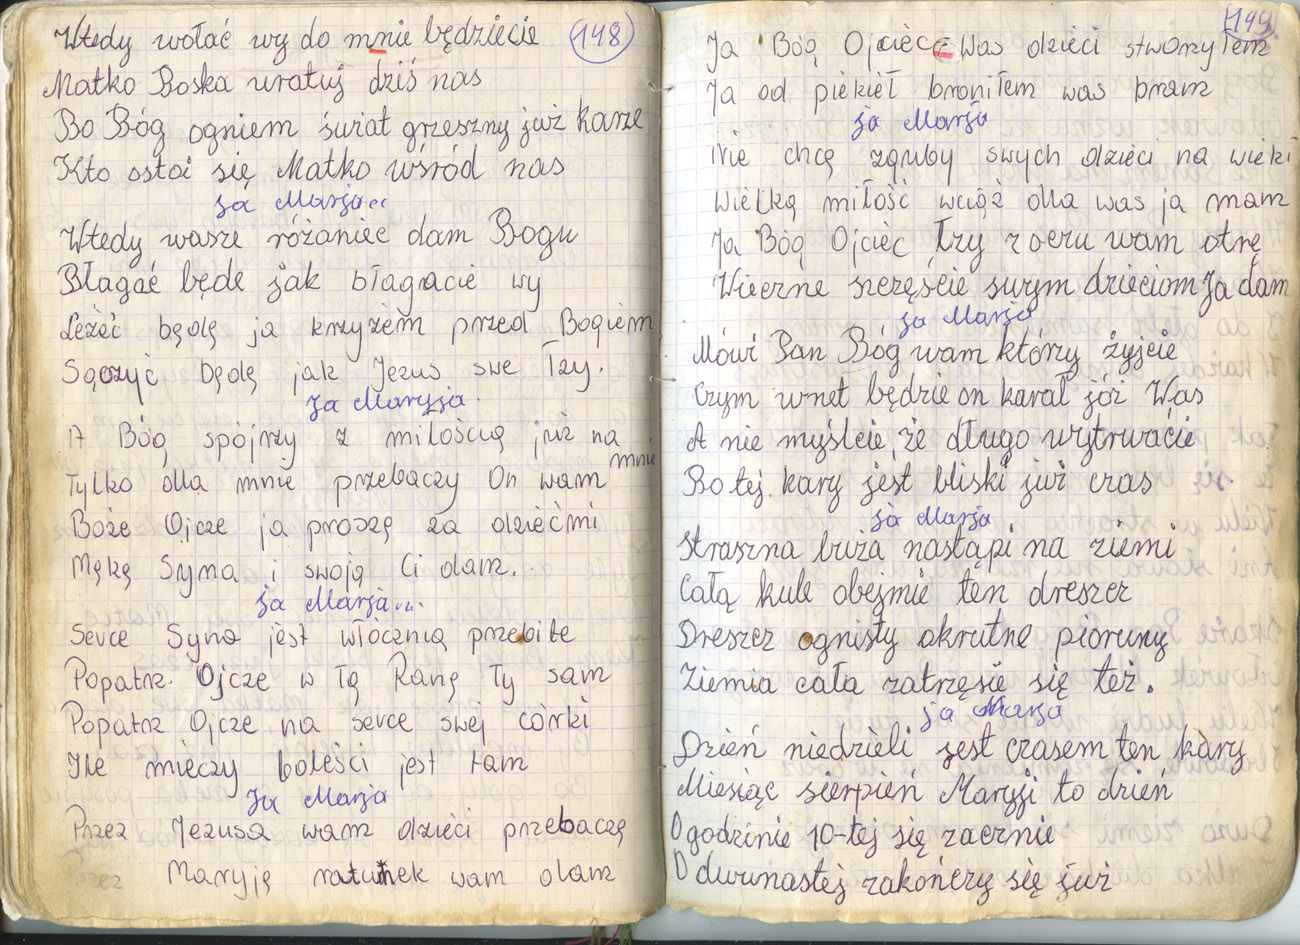 148
Wtedy wołać wy do mnie będziecie
Matko Boska uratuj dziś nas
Bo Bóg ogniem świat grzeszny już karze
Kto ostoi się Matko wśród nas
ja Marja...
Wtedy wasze różaniec dam Bogu
Błagać będe jak błagacie wy
Leżeć będę ja krzyżem przed Bogiem
Sączyć będę jak Jezus swe łzy.
Ja Maryja.
A Bóg spójrzy z miłością już na mnie
Tylko dla mnie przebaczy On wam
Boże Ojcze ja proszę za dziećmi
Mękę Syna i swoją Ci dam.
ja Marja...
Serce Syna jest włócznią przebite
Popatrz Ojcze w Tą Ranę Ty sam
Popatrz Ojcze na serce swej córki
Ile mieczy boleści jest tam
Ja Marja
Przez Jezusa wam dzieci przebaczę
Maryję ratunek wam dam
149
Ja Bóg Ojciec Was dzieci stworzyłem
Ja od piekieł broniłem was bram
ja Marja
Nie chcę zguby swych dzieci na wieki
Wielką miłość wciąż dla was ja mam
Ja Bóg Ojciec łzy z oczu wam otrę
Wieczne szczęście swym dzieciom Ja dam
ja Marja
Mówi Pan Bóg wam którzy żyjcie
Czym wnet będzie on karał jóż Was
A nie myślcie, że długo wytrwacie
Bo tej kary jest bliski już czas
ja Marja
Straszna burza nastąpi na ziemi
Całą kule obejmie ten dreszcz
Dreszcz ognisty okrutne pioruny
Ziemia cała zatrzęsie się też.
ja Marja
Dzień niedzieli jest czasem ten kary
Miesiąc sierpień Maryji to dzień
O godzinie 10-tej się zacznie
O dwunastej zakończy się już